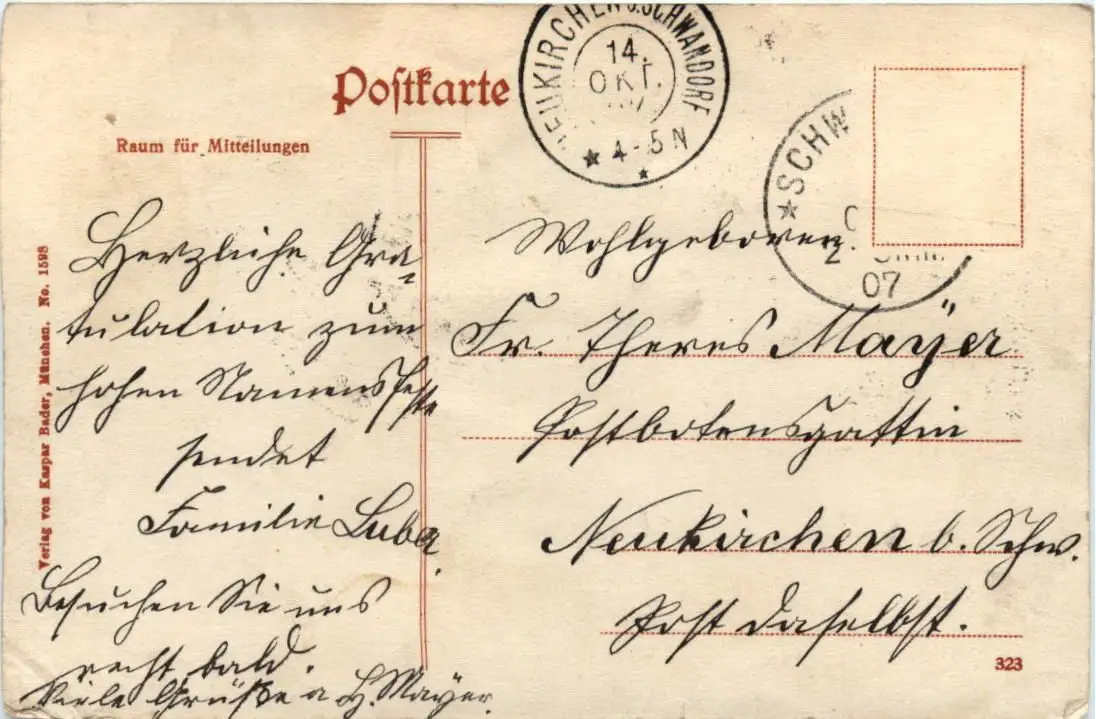 Postkarte
Raum für Mitteilungen
NEUKIRCHEN B. SCHWANDORF
14.
OKT.
07
4-5 N
SCHW
07
Herzliche Gra-
tulation zum
hohen Namensfeste
sendet
Familie Luber.
Besuchen Sie uns
recht bald.
Viele Grüße a H. Mayer.
Wohlgeboren
Fr. Theres Mayer
Postbotensgattin
Neukirchen b. Schw.
Post daselbst.
Verlag von Kaspar Bader, München. No. 1598
323